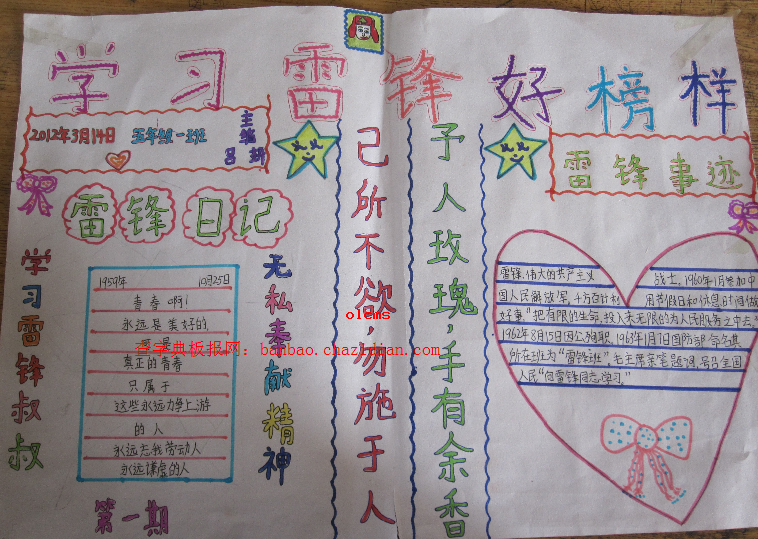 学习雷锋好榜样
2012年3月14日 五年级一班
主编
吕妍
雷锋日记
学习雷锋叔叔
1959年 10月25日
青春啊！
永远是美好的
真正的青春
只属于
这些永远力争上游
的人
永远忘我劳动人
永远谦虚的人
无私奉献精神
第一期
己所不欲，勿施于人
予人玫瑰，手有余香
雷锋事迹
雷锋，伟大的共产主义战士，1960年1月参加中
国人民解放军，千方百计利用节假日和休息时间做
好事。“把有限的生命，投入到无限的为人民服务之中去。”
1962年8月15日因公殉职，1963年1月7日国防部命名其
所在班为“雷锋班”，毛主席亲笔题词，号召全国
人民“向雷锋同志学习。”
olems
查字典板报网：banbao.chazidian.com